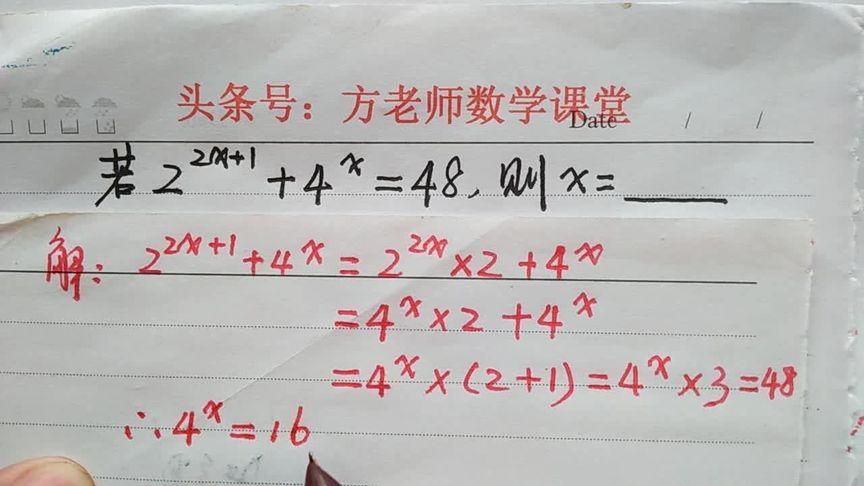 头条号：方老师数学课堂
Date / /
若 2^{2x+1} + 4^x = 48, 则 x = ____
解: 2^{2x+1} + 4^x = 2^{2x} × 2 + 4^x
= 4^x × 2 + 4^x
= 4^x × (2+1) = 4^x × 3 = 48
∴ 4^x = 16